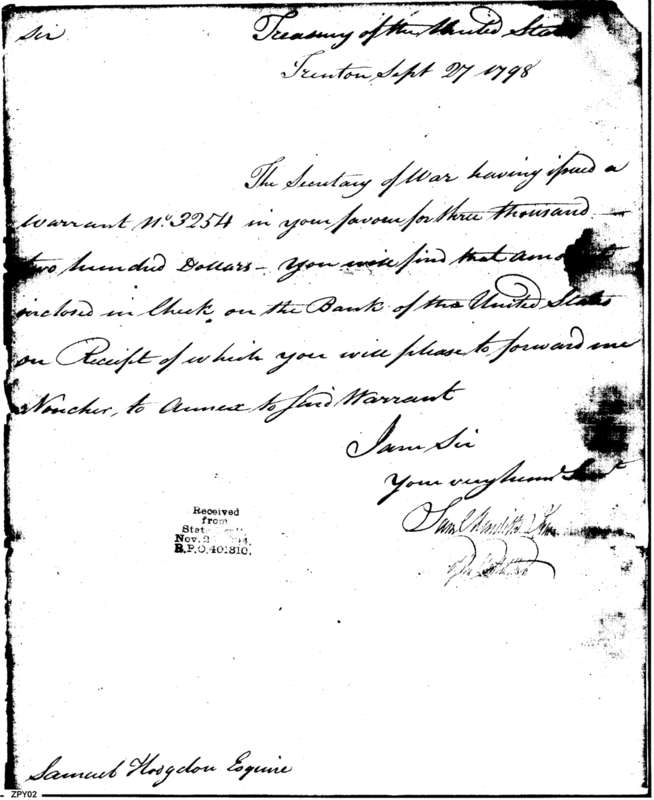 Sir Treasury of the United States
Trenton Sept 27 1798
The Secretary of War having issued a
Warrant No. 3254 in your favour for three thousand
two hundred Dollars - You will find that amount
inclosed in Check, on the Bank of the United States
on Receipt of which you will please to forward me
Voucher, to Annex to said Warrant
I am Sir
Your very humb. Servt
Saml
Received
from
State
Nov. 2
R.P.O. 401310.
Samuel Hodgdon Esquire
ZPY02